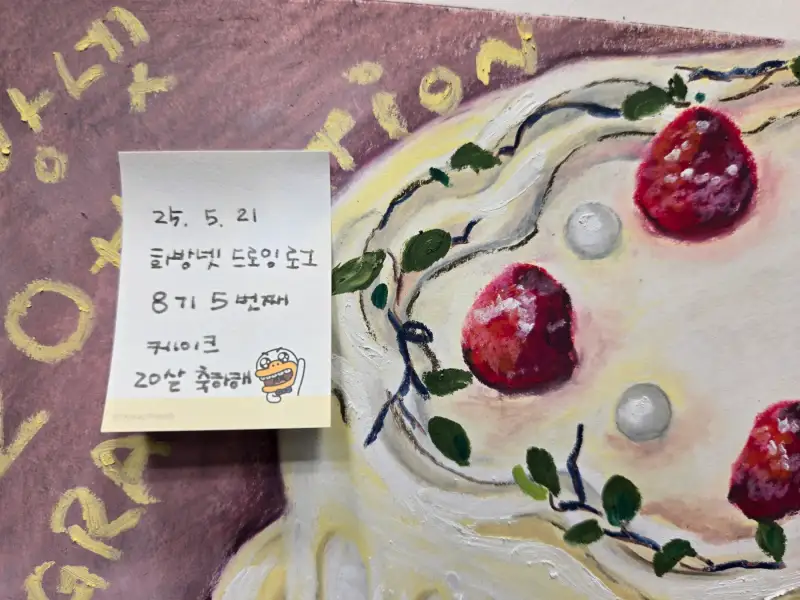 rion
25. 5. 21
화방넷 드로잉로그
8기 5번째
케이크
20살 축하해
GRA